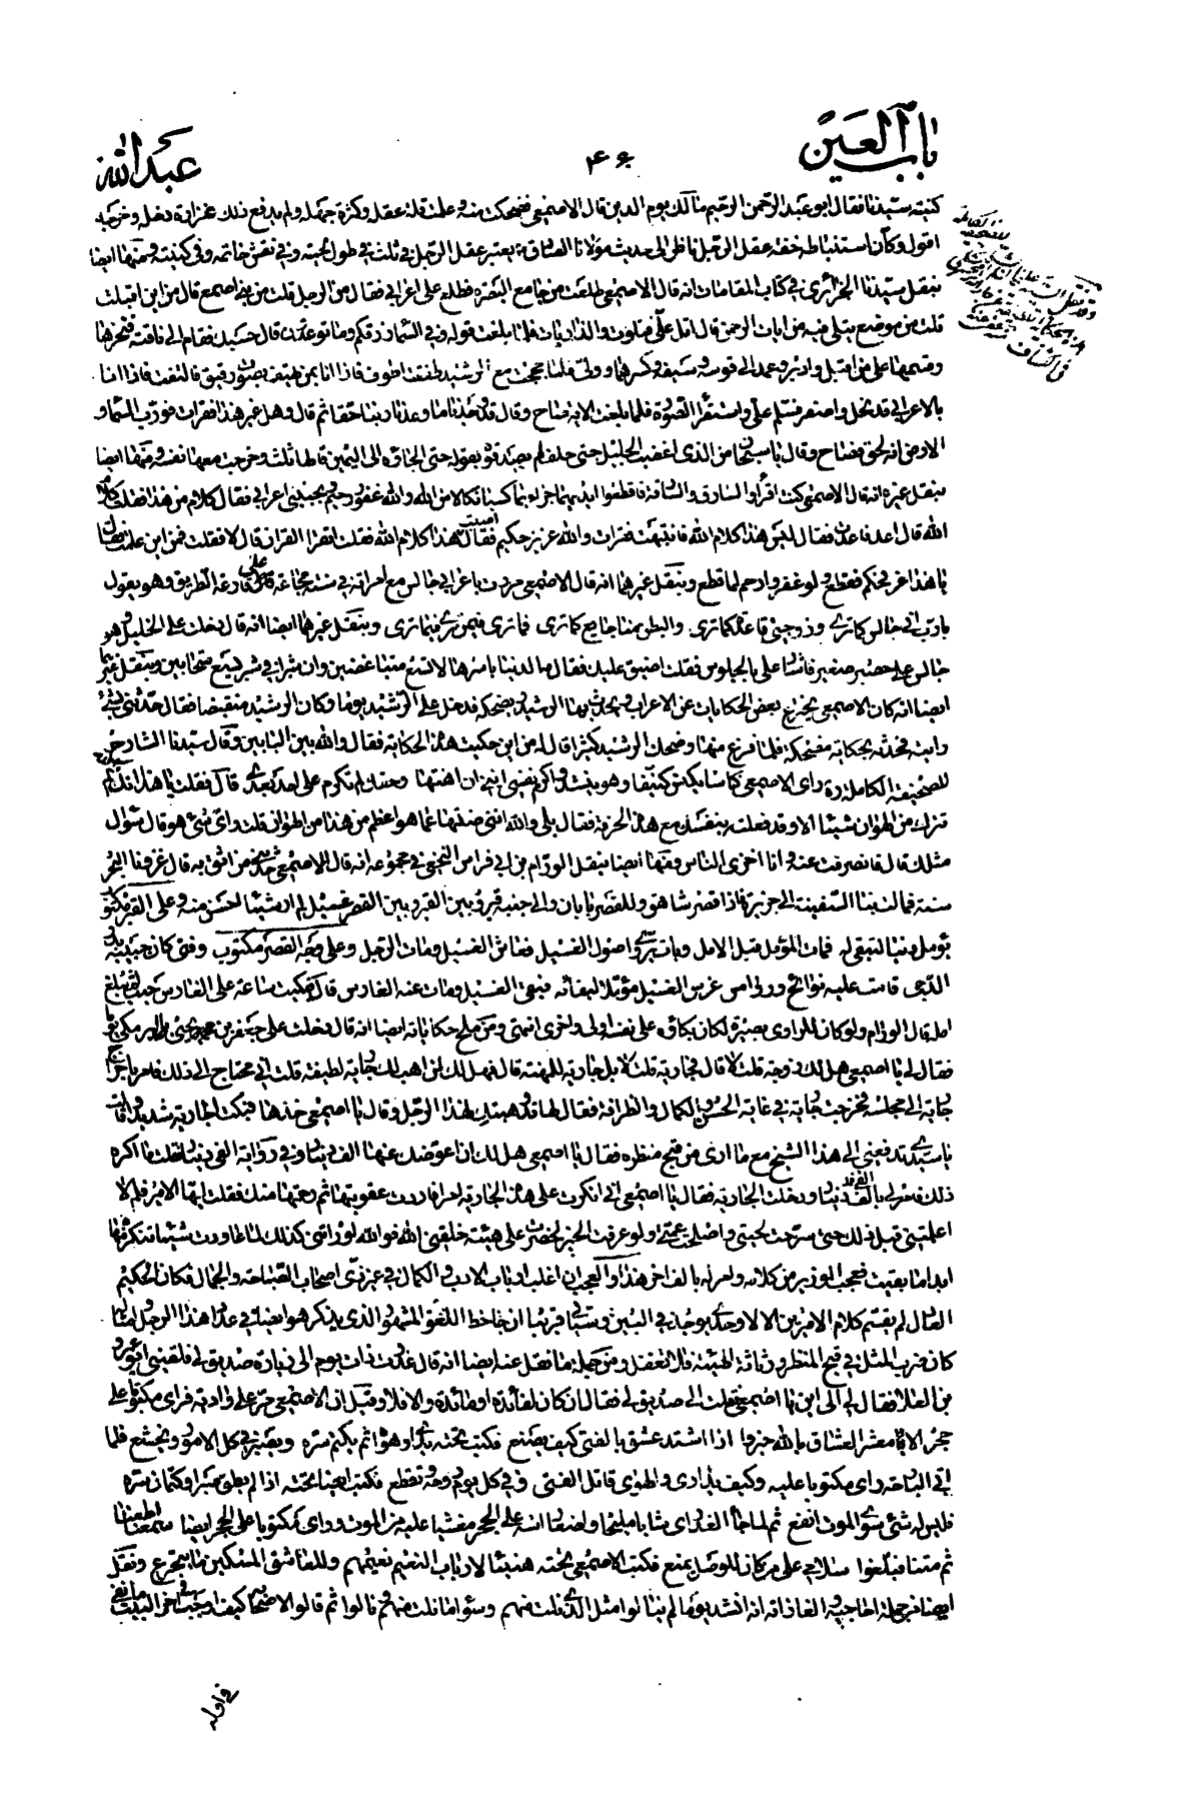 باب العين
۴۶۰
عبد الله
كنيته سيدنا فقال ابو عبد الرحمن الرحيم مالك يوم الدين قال الاصمعي فضحكت منه وعلمت قلة عقله وكثرة جهله ولم يدفع ذلك غزارة دخله وخرجه
اقول وكأن استنباطه خفة عقل الرجل ناظر الى حديث مولانا الصادق يعتبر عقل الرجل في ثلث في طول لحيته وفي نقش خاتمه وفي كنيته ومنها ايضا
بنقل سيدنا الجزائري في كتاب المقامات انه قال الاصمعي طلعت من جامع البصرة فطلع على اعرابي فقال من الرجل قلت من بني اصمع قال من اين اقبلت
قلت من موضع يتلى فيه من ايات الرحمن قال اتل على فتلوت والذاريات فلما بلغت قوله وفي السماء رزقكم وما توعدون قال حسبك فقام الى ناقته فنحرها
وقسمها على من اقبل وادبر وعمد الى قوسه وسيفه وكسرهما وولى فلما حججت مع الرشيد طفقت اطوف فاذا انا بمن يهتف بصوت رقيق فالتفت فاذا انا
بالاعرابي قد نحل واصفر فسلم على واستقرأ السورة فلما بلغت الاية صاح وقال قد وجدنا ما وعدنا ربنا حقا ثم قال وهل غير هذا فقرات فورب السماء و
الارض انه لحق فصاح وقال يا سبحان من الذى اغضب الجليل حتى حلف لم يصدقوه بقوله حتى الجاؤه الى اليمين قالها ثلث وخرجت معها نفسه ومنها ايضا
بنقل غيره انه قال الاصمعي كنت اقرأ والسارق والسارقة فاقطعوا ايديهما جزاء بما كسبا نكالا من الله والله غفور رحيم وبجنبي اعرابي فقال كلام من هذا فقلت كلام
الله قال اعد فاعدت فقال ليس هذا كلام الله فانتبهت فقرات والله عزيز حكيم فقال اصبت هذا كلام الله فقلت اتقرأ القران قال لا فقلت فمن اين علمت فقال
يا هذا عز فحكم فقطع ولو غفر ورحم لما قطع وبنقل غيرهما انه قال الاصمعي مررت باعرابي جالس مع امراته في سنة مجاعة على قارعة الطريق وهو يقول
يا رب اني جالس كما ترى وزوجتي قاعدة كما ترى والبطن منا جايع كما ترى فما ترى فيمن ترى فيما ترى وبنقل غيرها ايضا انه قال دخلت على الخليل وهو
جالس على حصير صغير فاشار على بالجلوس فقلت اضيق عليك فقال مه الدنيا باسرها لا تسع متباغضين وان شبرا في شبر يسع متحابين وبنقل غيرها
ايضا انه كان الاصمعي يخترع بعض الحكايات عن الاعراب ويحدث بها الرشيد يضحكه فدخل على الرشيد يوما وكان الرشيد منقبضا فقال حدثني بشئ
رايته فحدثه بحكاية مضحكة فلما فرغ منها وضحك الرشيد كثيرا قال له من اين حكيت هذه الحكاية فقال والله بين البابين وقال سيدنا الشارح
للصحيفة الكاملة ره راى الاصمعي كناسا يكنس كنيفا وهو ينشد واكرم نفسي انني ان اهنتها وحقك لم تكرم على احد بعدي قال فقلت يا هذا انك لم
تترك من الهوان شيئا الا وقد فعلته بنفسك مع هذه الحرفة فقال بلى والله انني صنتها عما هو اعظم من هذا من الهوان قلت واي شئ هو قال سؤال
مثلك قال فانصرفت عنه وانا اخزى الناس ومنها ايضا بنقل الورام بن ابي فراس النخعي في مجموعه انه قال الاصمعي حدثني من اثق به قال غزونا البحر
سنة فمالت بنا السفينة الى جزيرة فاذا قصر شاهق وللقصر بابان والى جنبه قبر وبين القبر وبين القصر غسيل لم ار شيئا احسن منه وعلى القبر مكتوب
يؤمل دنيا لتبقى له فمات المؤمل قبل الامل وبات يروي اصول الفسيل فعاش الفسيل ومات الرجل وعلى وجه القصر مكتوب وفتى كان جبينه بدر
الدجى قامت عليه نوائح
اهله قال الورام ولو كان للراوى بصيرة لكان بكاؤه على نفسه اولى واحرى انتهى ومن ملح حكاياته ايضا انه قال دخلت على جعفر بن يحيى البرمكي يوما
فقال لي يا اصمعي هل لك زوجة قلت لا قال فجارية قلت لا بل جارية للمهنة قال فهل لك ان اهب لك جارية لطيفة قلت اني محتاج الى ذلك فامر باخراج
جارية الى مجلسه فخرجت جارية في غاية الحسن والكمال والظرافة فقال لها قد وهبتك لهذا الرجل وقال يا اصمعي خذها فبكت الجارية شديدا وقالت
يا سيدي تدفعني الى هذا الشيخ مع ما ارى من قبح منظره فقال يا اصمعي هل لك ان اعوضك عنها الف دينار وفي رواية الفي دينار فقلت ما اكره
ذلك فامر لي بالف دينار ودخلت الجارية فقال يا اصمعي اني انكرت على هذه الجارية امرا فاردت عقوبتها ثم رحمتها منك فقلت ايها الامير فلم لا
اعلمتني قبل ذلك حتى سرحت لحيتي واصلحت عمتي ولو عرفت الخبر لحضرت على هيئة خلقني الله فوالله لو راتني كذلك لما عاودت شيئا تنكره منها
ابدا ما بقيت فعجب الوزير من كلامه وامر له بالف اخر هذا والعجب ان اغلب ارباب الادب والكمال في غير زي اصحاب القباحة والجمال فكان الحكيم
العدل لم يقسم كلام الامرين الا لاوحدي يوجد في البين وسياتي قريبا ان جاحظ اللغوى المشهور الذى يذكر هو ايضا في عداد هذا الرجل وامثاله
كان يضرب المثل في قبح المنظر ورثاثة الهيئة فلا تغفل ومن جملة ما نقل عنه ايضا انه قال غدوت ذات يوم الى زيارة صديق لي فلقيني ابو عمرو
بن العلا فقال لي الى اين يا اصمعي فقلت الى صديق لي فقال ان كان لفائدة او مائدة والا فلا وقيل ان الاصمعي مر على وادية فراى مكتوبا على
حجر الا يا معشر العشاق بالله خبروا اذا اشتد عشق بالفتى كيف يصنع فكتب تحته يدارى هواه ثم يكتم سره ويصبر في كل الامور ويخشع فلما
اتى البارحة راى مكتوبا عليه وكيف يدارى والهوى قاتل الفتى وفي كل يوم روحه تقطع فكتب ايضا تحته اذا لم يطق صبرا وكتمان سره
فليس له شئ سوى الموت انفع ثم لما جاء الغد راى شابا مليحا واضعا راسه على الحجر مغشيا عليه من الموت وراى مكتوبا على الحجر ايضا سمعنا اطعنا
ثم متنا فبلغوا سلامي على من كان للوصل يمنع فكتب الاصمعي تحته هنيئا لارباب النعيم نعيمهم وللعاشق المسكين ما يتجرع ونقل
ايضا من جملة احاجيه والغازاته انه انشد يوما لم ينالوا مثل الذى نلت منهم وسواء ما نلت منهم ونالوا ثم قال لاصحابه كيف وجب في اخر البيت ما نفى
في اوله